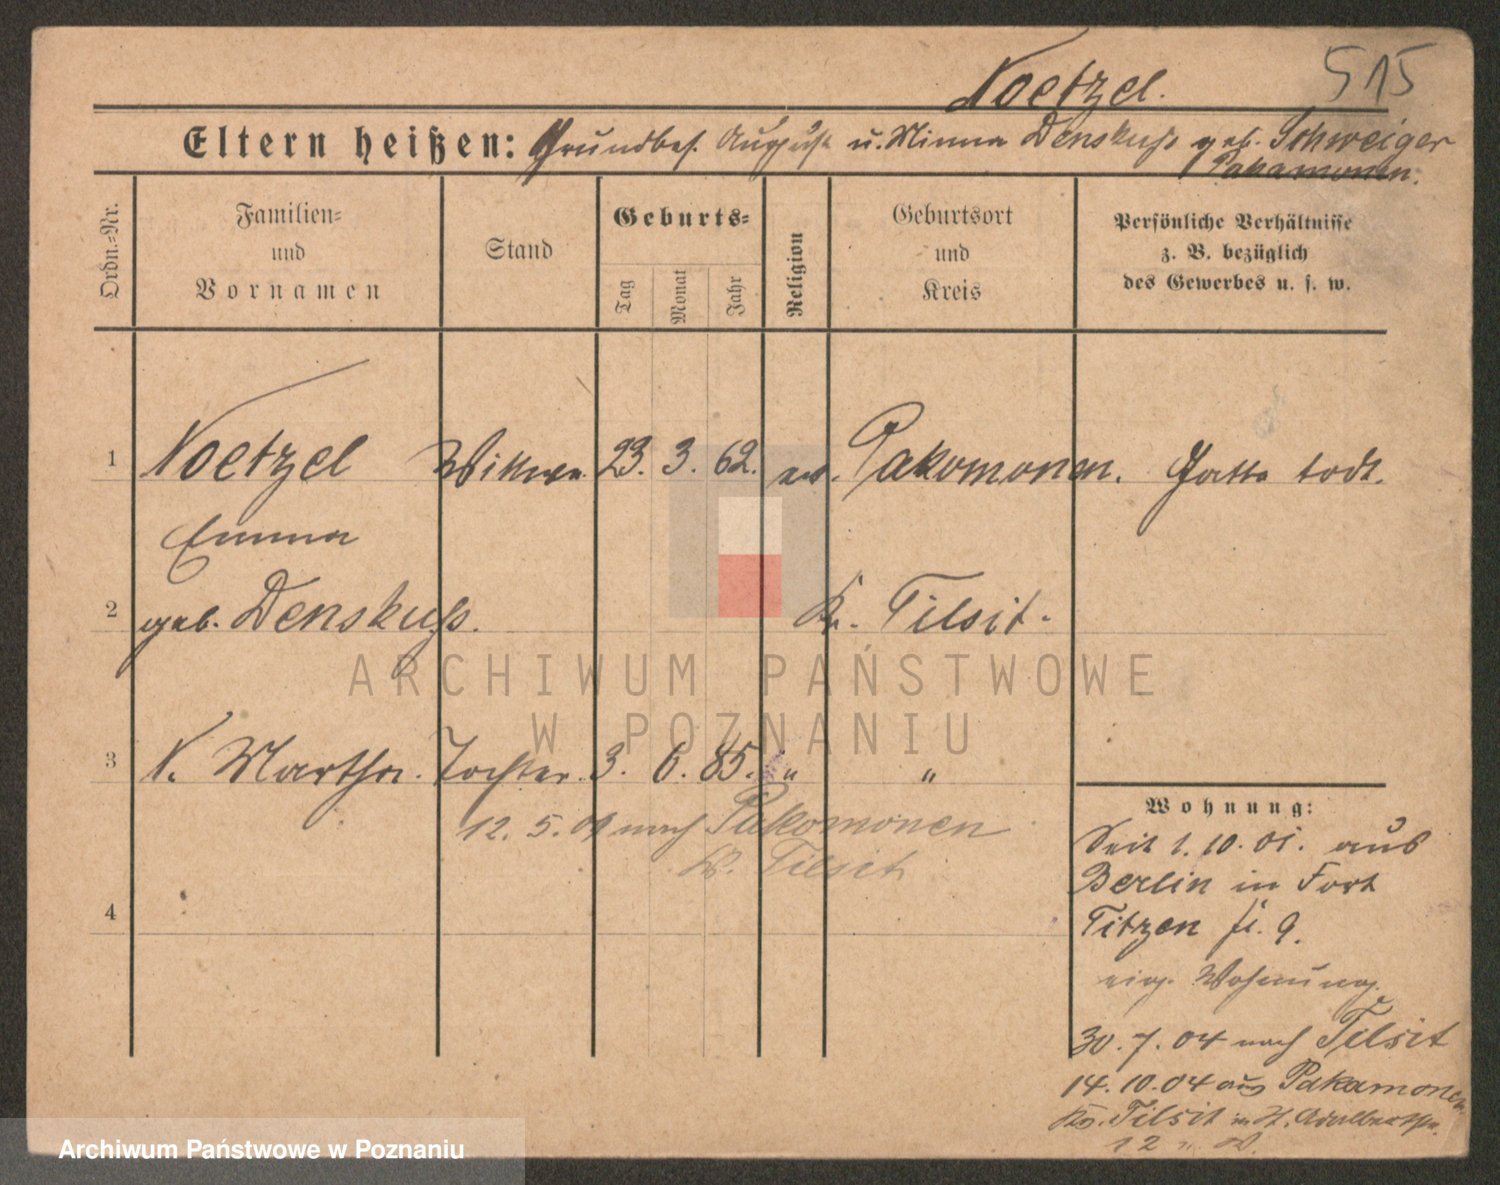 Noetzel.
515
Eltern heißen: Grundbes. August u. Minna Denskuß geb. Schweiger
Pakamonen.
Ordn.=Nr.
Familien=
und
Vornamen
Stand
Geburts=
Tag
Monat
Jahr
Religion
Geburtsort
und
Kreis
Persönliche Verhältnisse
z. B. bezüglich
des Gewerbes u. s. w.
1 Noetzel Wittwe. 23. 3. 62. ev. Pakomonen. Gatte todt.
Emma
2 geb. Denskuß. Kr. Tilsit.
ARCHIWUM PAŃSTWOWE
W POZNANIU
3 N. Martha. Tochter. 3. 6. 85. " "
12. 5. 01 nach Pakomonen
Kr. Tilsit
4
Wohnung:
Seit 1. 10. 01. aus
Berlin in Fort
Titzen fl. 9.
eig. Wohnung.
30. 7. 04 nach Tilsit
14. 10. 04 aus Pakamonen
Kr. Tilsit in St. Adalbertstr.
12
Archiwum Państwowe w Poznaniu